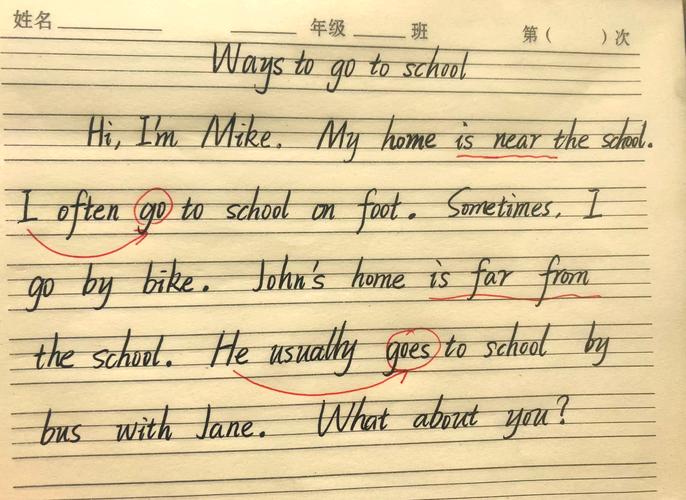 姓名 年级 班 第( )次
Ways to go to school
Hi, I'm Mike. My home is near the school.
I often go to school on foot. Sometimes, I
go by bike. John's home is far from
the school. He usually goes to school by
bus with Jane. What about you?